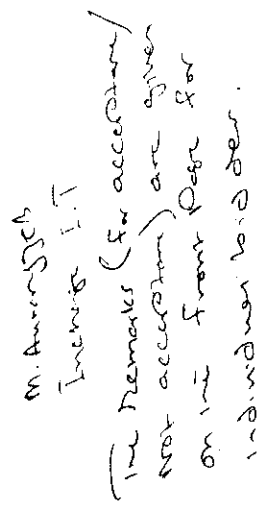 M. Aurangzeb
Incharge I.T
(The remarks (for acceptance/
Not acceptance) are given
on the front page for
individual bidder.